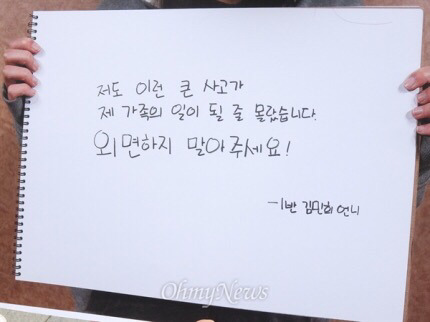 저도 이런 큰 사고가
제 가족의 일이 될 줄 몰랐습니다.
외면하지 말아주세요!
-1반 김민희 언니
OhmyNews